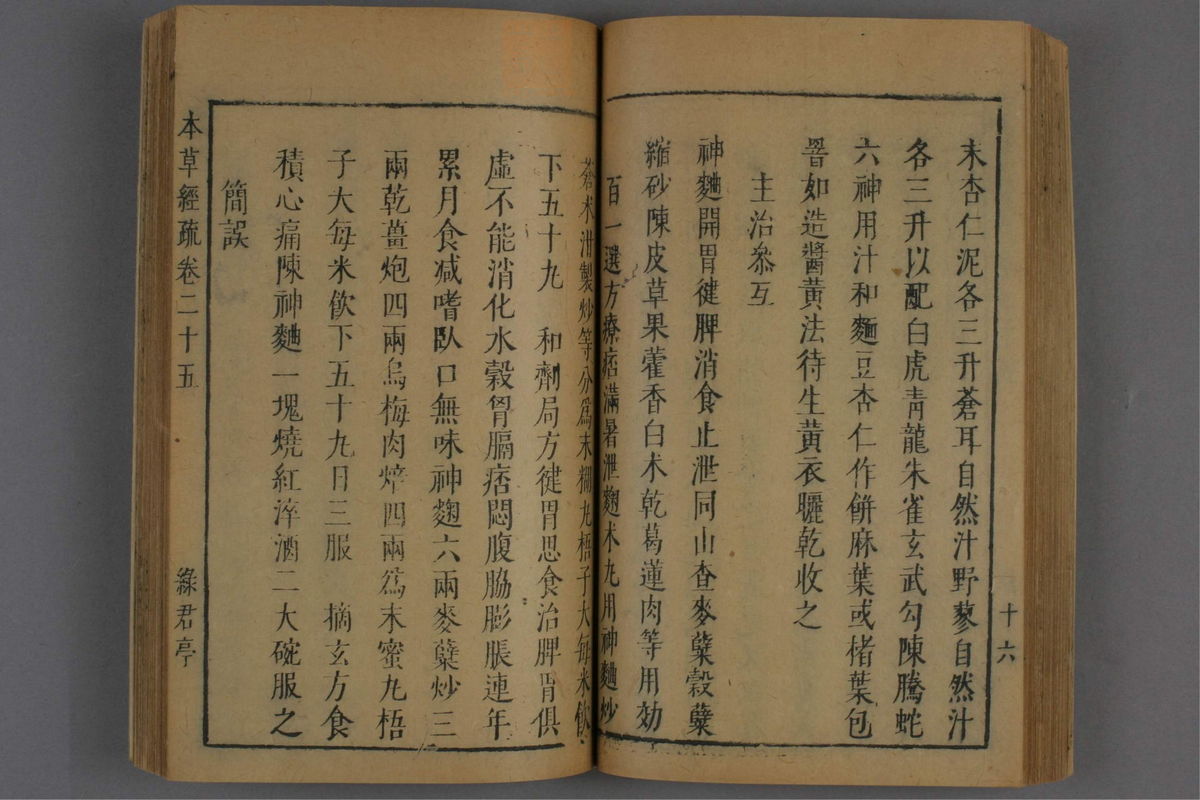 十六
末杏仁泥各三升蒼耳自然汁野蓼自然汁
各三升以配白虎靑龍朱雀玄武勾陳騰蛇
六神用汁和麵豆杏仁作餅麻葉或楮葉包
罯如造醬黄法待生黄衣曬乾收之
主治叅互
神麯開胃健脾消食止泄同山查麥蘖穀蘖
縮砂陳皮草果藿香白术乾葛蓮肉等用効
百一選方療痞滿暑泄麴术丸用神麯炒
蒼术泔製炒等分爲末糊丸梧子大每米飲
下五十九　和劑局方健胃思食治脾胃俱
虛不能消化水穀胷膈痞悶腹脇膨脹連年
累月食减嗜臥口無味神麴六兩麥蘖炒三
兩乾薑炮四兩烏梅肉焙四兩爲末蜜丸梧
子大每米飲下五十九日三服　摘玄方食
積心痛陳神麯一塊燒紅淬酒二大碗服之
簡誤
本草經疏卷二十五　綠君亭